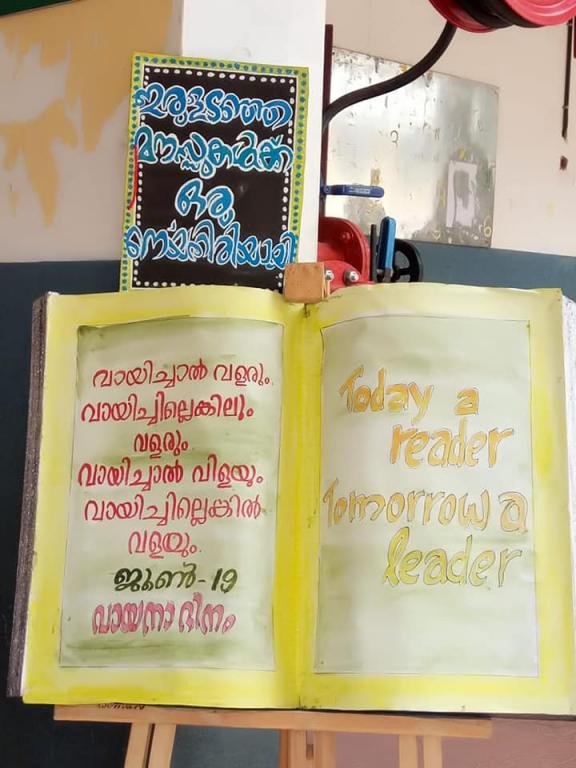 ഇരുട്ടടഞ്ഞ
മനസ്സുകൾക്ക്
ഒരു
നെയ്ത്തിരിയായി
വായിച്ചാൽ വളരും.
വായിച്ചില്ലെങ്കിലും
വളരും
വായിച്ചാൽ വിളയും
വായിച്ചില്ലെങ്കിൽ
വളയും.
ജൂൺ-19
വായനാ ദിനം
Today a
reader
Tomorrow a
leader